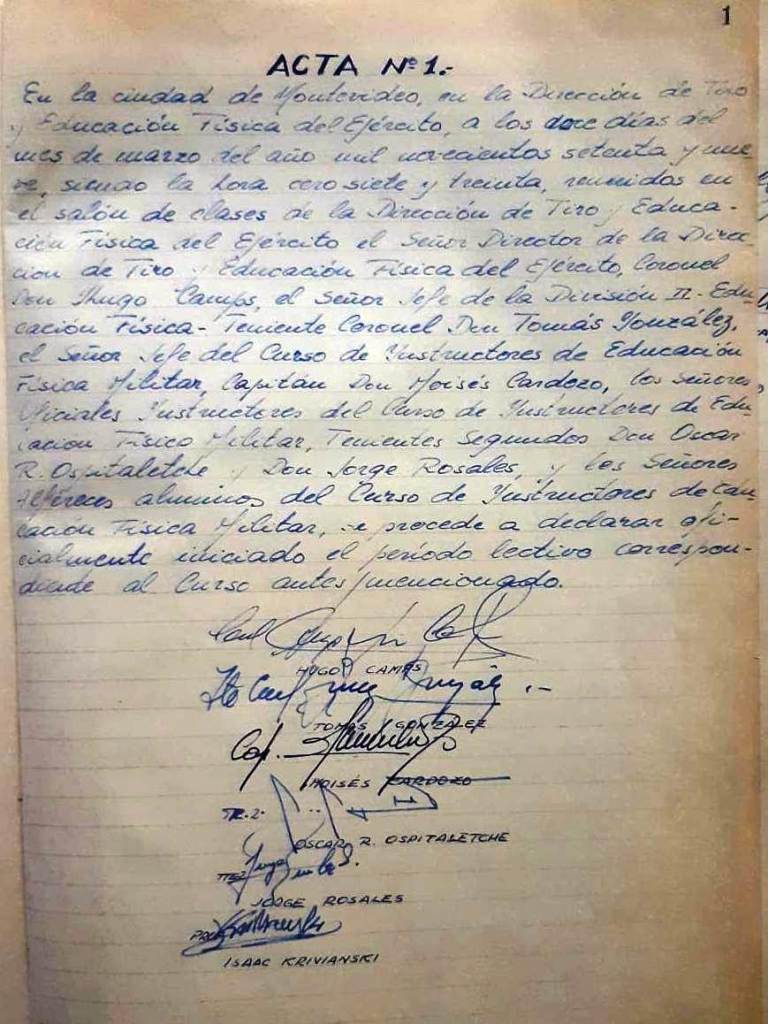 1
ACTA Nº 1.-
En la ciudad de Montevideo, en la Dirección de Tiro
y Educación Física del Ejército, a los doce días del
mes de marzo del año mil novecientos setenta y nue-
ve, siendo la hora cero siete y treinta, reunidos en
el salón de clases de la Dirección de Tiro y Educa-
ción Física del Ejército el Señor Director de la Direc-
ción de Tiro y Educación Física del Ejército, Coronel
Don Hugo Camps, el Señor Jefe de la División II - Edu-
cación Física - Teniente Coronel Don Tomás González,
el Señor Jefe del Curso de Instructores de Educación
Física Militar, Capitán Don Moisés Cardozo, los Señores
Oficiales Instructores del Curso de Instructores de Edu-
cación Físico Militar, Tenientes Segundos Don Oscar
R. Ospitaletche y Don Jorge Rosales, y los Señores
Alféreces alumnos del Curso de Instructores de Edu-
cación Física Militar, se procede a declarar ofi-
cialmente iniciado el período lectivo correspon-
diente al Curso antes mencionado.
HUGO CAMPS
TOMÁS GONZÁLEZ
Cap.
MOISÉS CARDOZO
TTE. 2.
OSCAR R. OSPITALETCHE
TTE 2
JORGE ROSALES
PROF.
ISAAC KRIVIANSKI